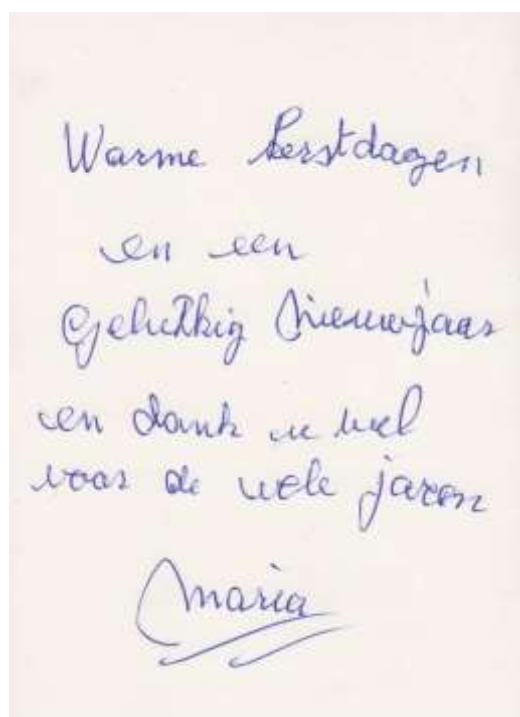 Warme kerstdagen
en een
Gelukkig Nieuwjaar
en dank u wel
voor de vele jaren
Maria